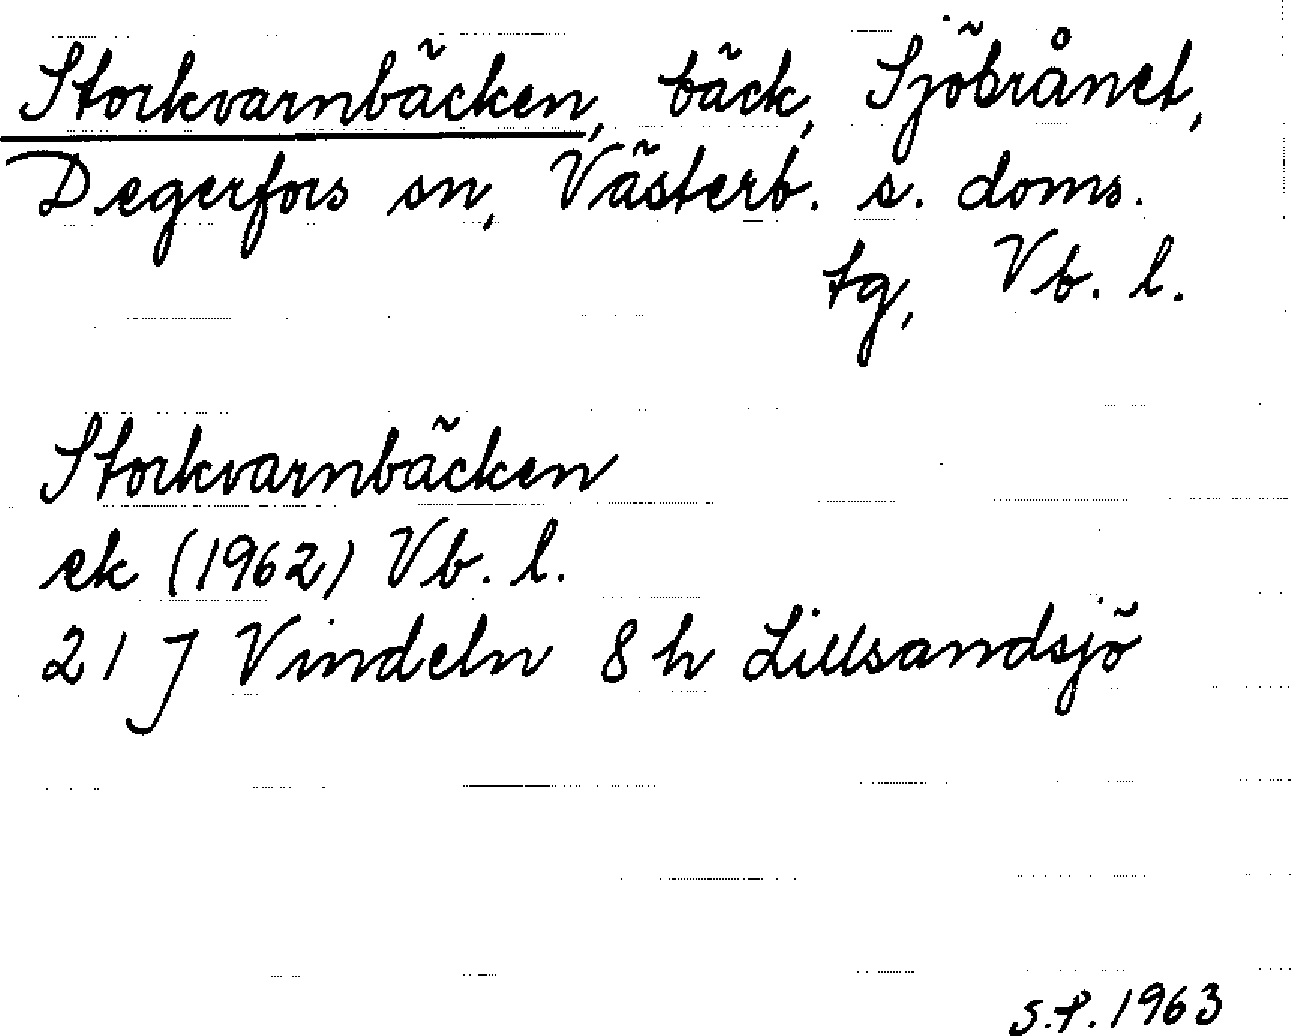 Storkvarnbäcken, bäck, Sjöbrånet,
Degerfors sn, Västerb. s. doms.
tg, Vb. l.
Storkvarnbäcken
ek (1962) Vb. l.
21 J Vindeln 8 h Lillsandsjö
S.P. 1963